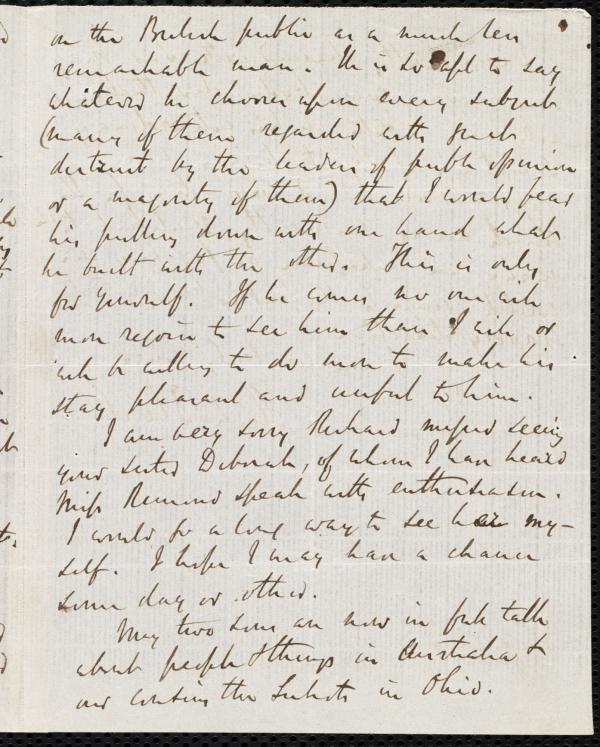 on the British public as a much less
remarkable man. He is so apt to say
whatever he chooses upon every subject
(many of them regarded with great
distrust by the leaders of public opinion
or a majority of them) that I would fear
his pulling down with one hand what
he built with the other. This is only
for yourself. If he comes no one will
more rejoice to see him than I will or
will be willing to do more to make his
stay pleasant and useful to him.
I am very sorry Richard missed seeing
your sister Deborah, of whom I have heard
Miss Remond speak with enthusiasm.
I would go a long way to see her my-
self. I hope I may have a chance
some day or other.
My two sons are now in full talk
about people & things in Australia &
our cousins the in Ohio.